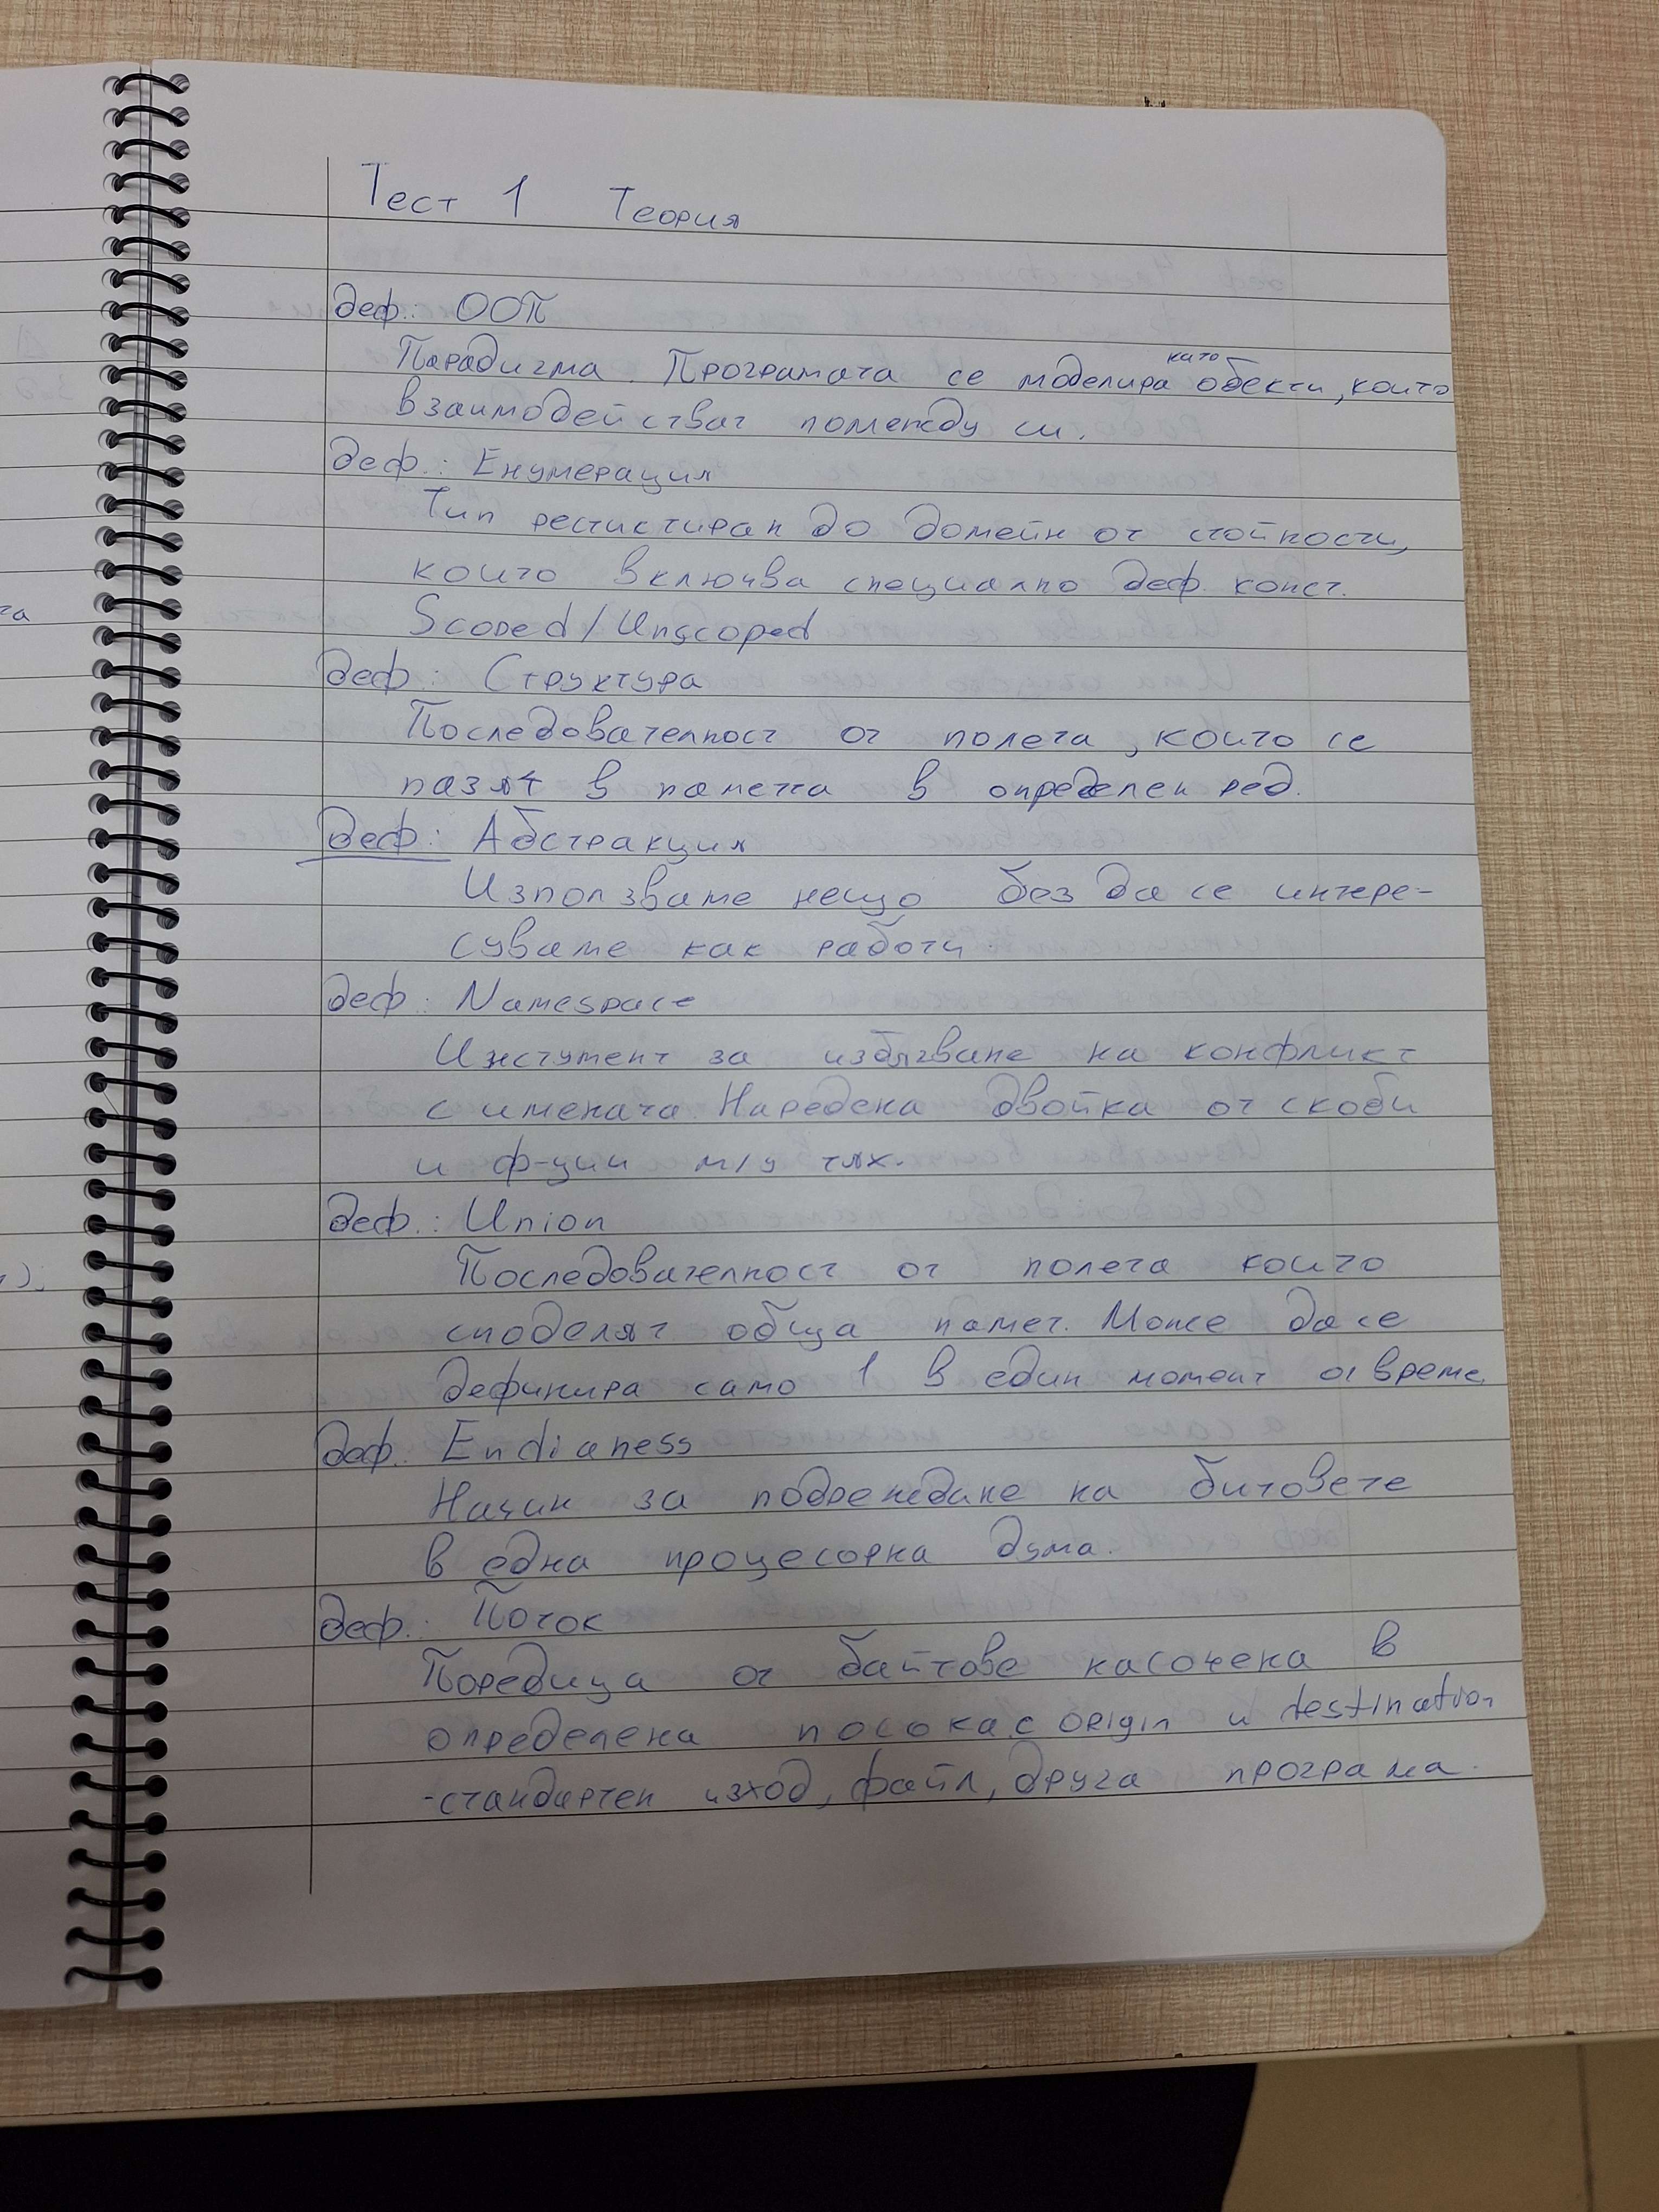 Тест 1 Теория
деф.: ООП
Парадигма. Програмата се моделира като обекти, които
взаимодействат помежду си.
деф.: Енумерация
Тип рестиктиран до домейн от стойности,
които включва специално деф. конст.
Scoped / Unscoped
деф.: Структура
Последователност от полета, които се
пазят в паметта в определен ред.
деф: Абстракция
Използваме нещо без да се интере-
суваме как работи.
деф: Namespace
Инстумент за избягване на конфликт
с имената. Наредена двойка от скоби
и ф-ции м/у тях.
деф.: Union
Последователност от полета които
споделят обща памет. Може да се
дефинира само 1 в един момент от време.
деф.: Endianess
Начин за подреждане на битовете
в една процесорна дума.
деф.: Поток
Поредица от байтове насочена в
определена посока с origin и destination
-стандартен изход, файл, друга програма.
та
);